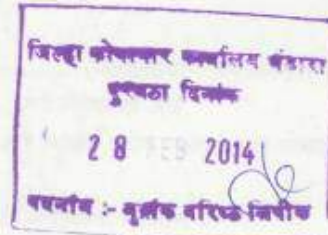 जिल्हा कोषागार कार्यालय भंडारा
पुरवठा दिनांक
28 FEB 2014
पदनांव :- मुद्रांक वरिष्ठ लिपीक